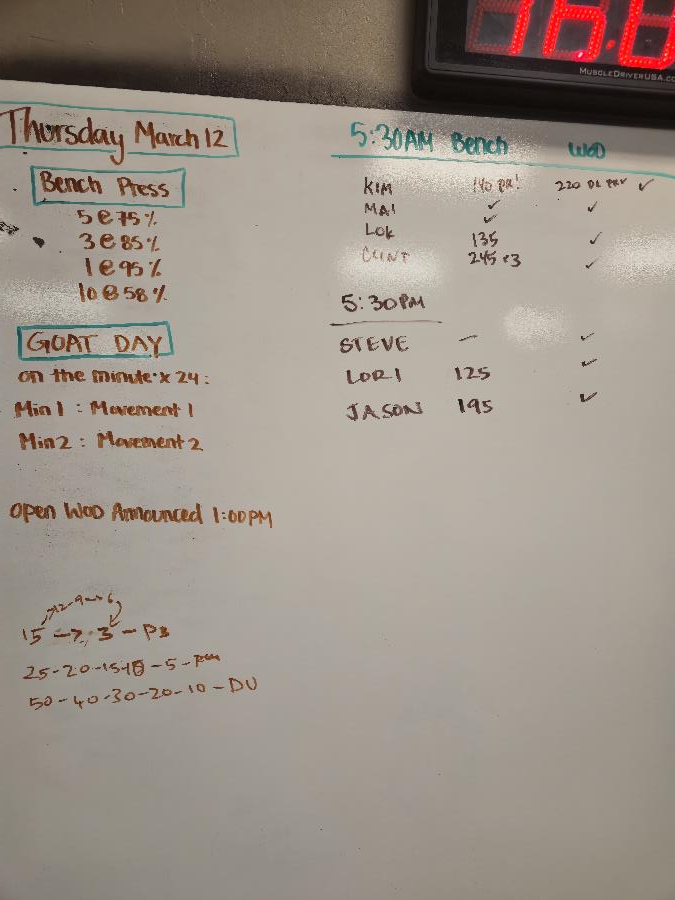 MUSCLEDRIVERUSA.CO
Thursday March 12
Bench Press
5 @ 75%
3 @ 85%
1 @ 95%
10 @ 58%
GOAT DAY
on the minute x 24:
Min 1 : Movement 1
Min 2 : Movement 2
Open WOD Announced 1:00PM
12-9-6
15 → 3 - PS
25-20-15-10-5-
50-40-30-20-10-DU
5:30AM Bench WOD
KIM 140 PR! 220 DL ✓
MAI ✓ ✓
LOK ✓ 135 ✓
CLINT 245 x3 ✓
5:30PM
STEVE — ✓
LORI 125 ✓
JASON 195 ✓